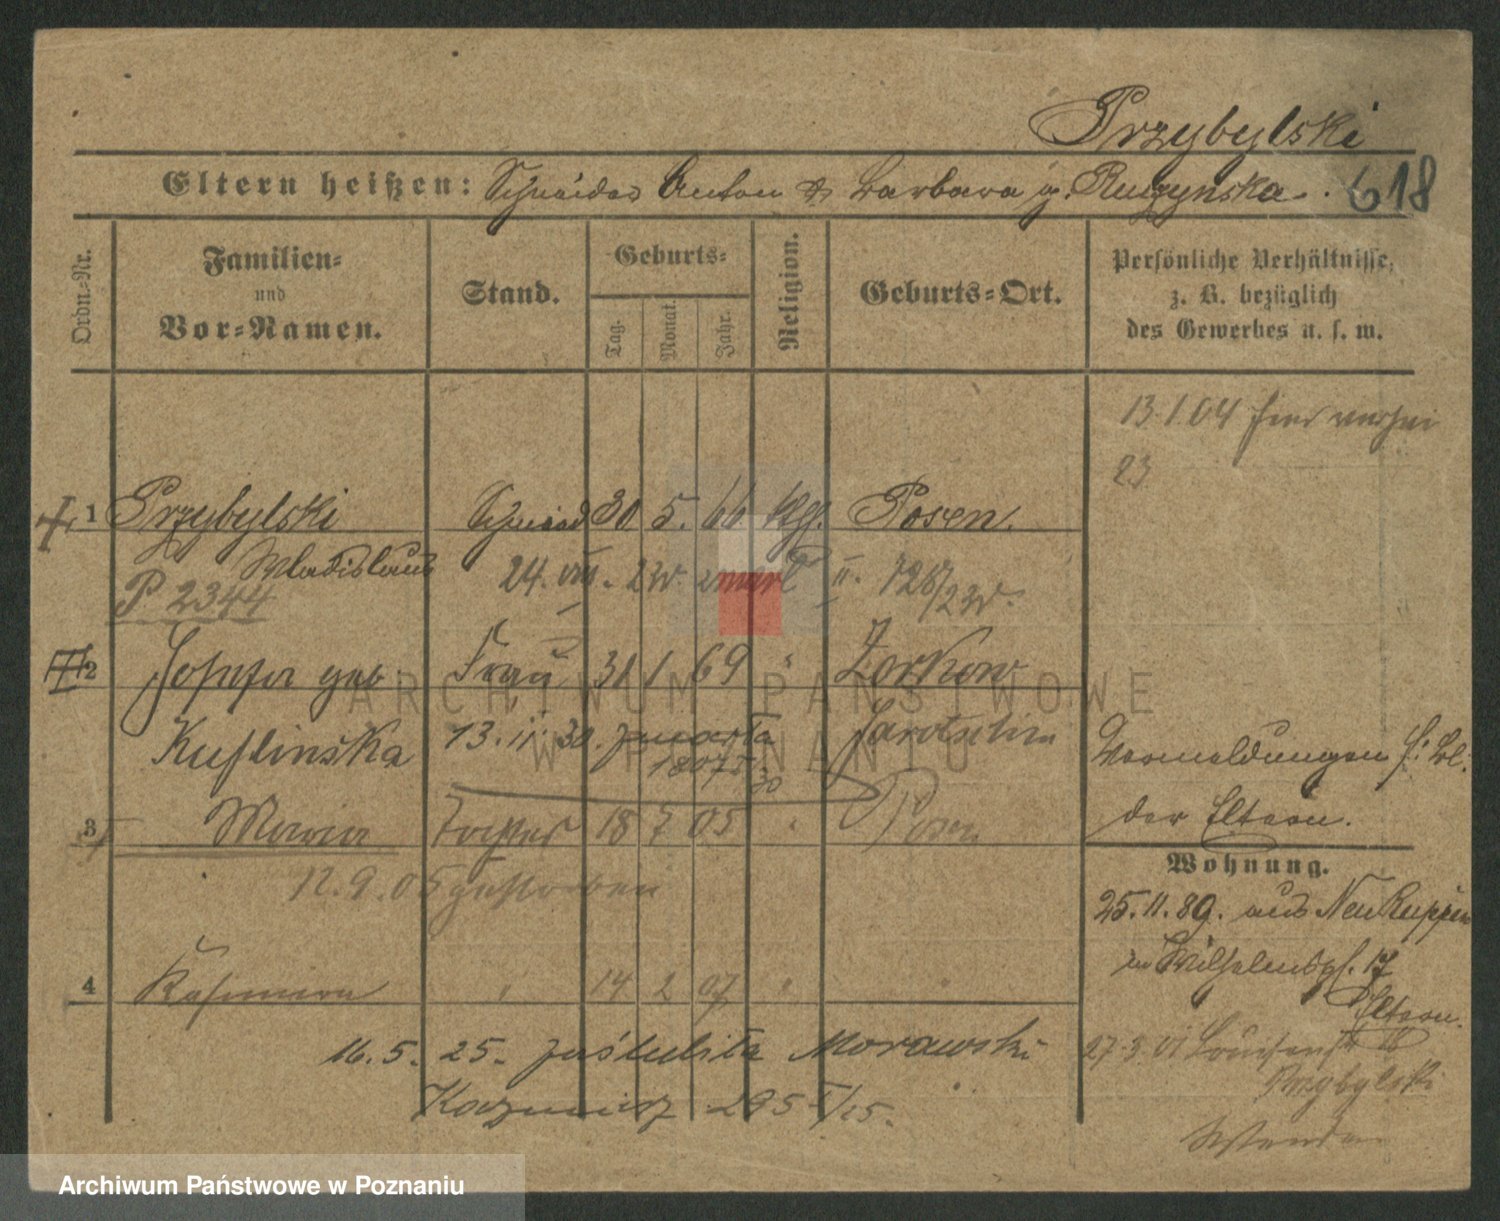 Przybylski
Eltern heißen: Schneider Anton & Barbara g. Ruczynska. 618
Ordn.-Nr.
Familien-
und
Vor-Namen.
Stand.
Geburts-
Tag.
Monat.
Jahr.
Religion.
Geburts-Ort.
Persönliche Verhältnisse,
z. B. bezüglich
des Gewerbes u. s. w.
13.1.04
23
1 Przybylski Schneid 30 5. 66 ktg. Posen.
Wladislaus
P 2344
24. VIII. 23r. zmarł II. 1267/23r.
2 geb Frau 31 1 69 " Zerkow
Kuflinska 13. 11. 30. Jarotschin
1807 30
3 Maria Tochter 18 7 05 " Posen
12.9.05 gestorben
4 Kasimira " 14 2 07 " "
16. 5. 25. zaślubiła Morawski
Kazimierz 295 V/25.
Vormeldungen
der Eltern.
Wohnung.
25.11.89. aus Neu Ruppin
in Wilhelmspl. 17
Eltern.
27.3.01 Louisenst 16
Przybylski
Wenden
ARCHIWUM PAŃSTWOWE
W POZNANIU
Archiwum Państwowe w Poznaniu